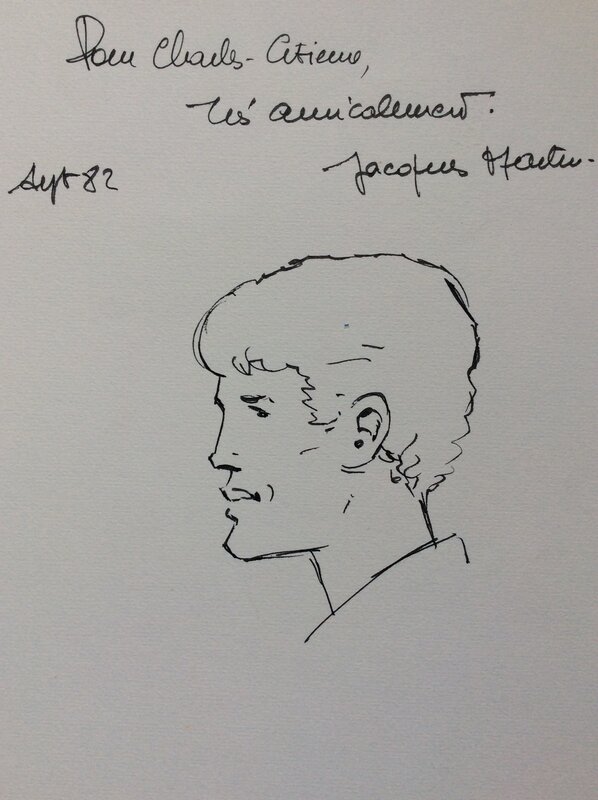 Pour Charles-Etienne,
très amicalement.
Jacques Martin.
Sept 82